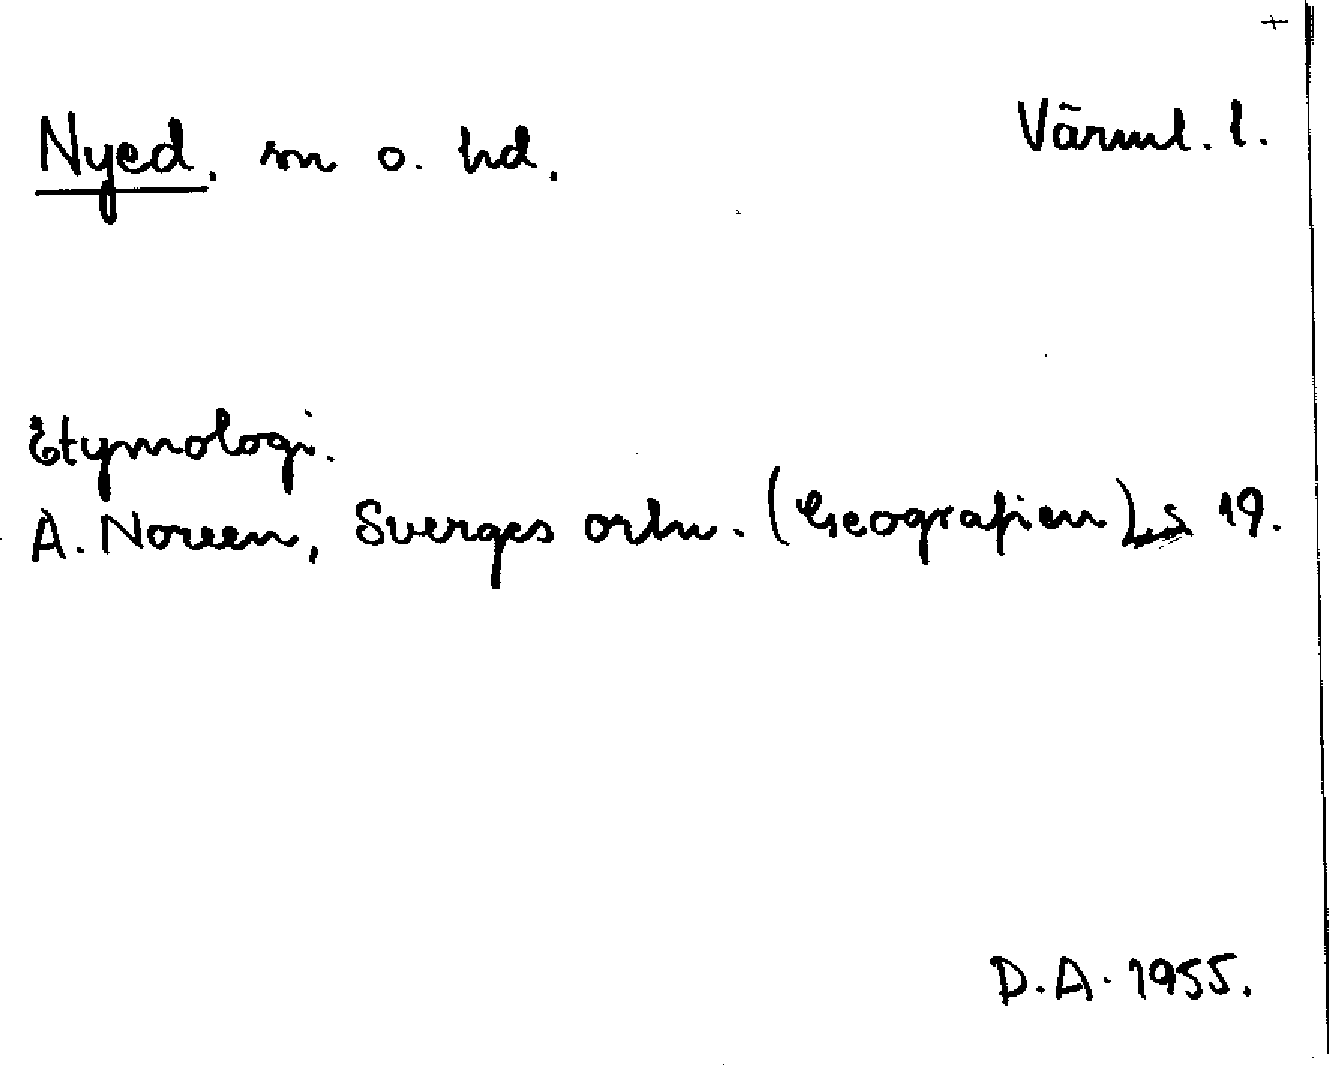 +
Nyed. sn o. hd. Värml. l.
Etymologi.
A. Noreen, Sverges ortn. (Geografien) s 19.
D.A. 1955.